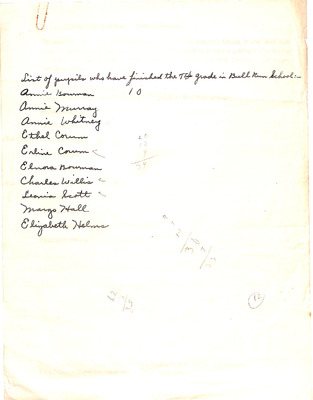 List of pupils who have finished the 7th grade in Bull Run School:-
Annie Bowman 10
Annie Murray
Annie Whitney
Ethel Corum
Erline Corum
Elnora Bowman
Charles Willis
Leonia Scott
Margo Hall
Elizabeth Helms
12